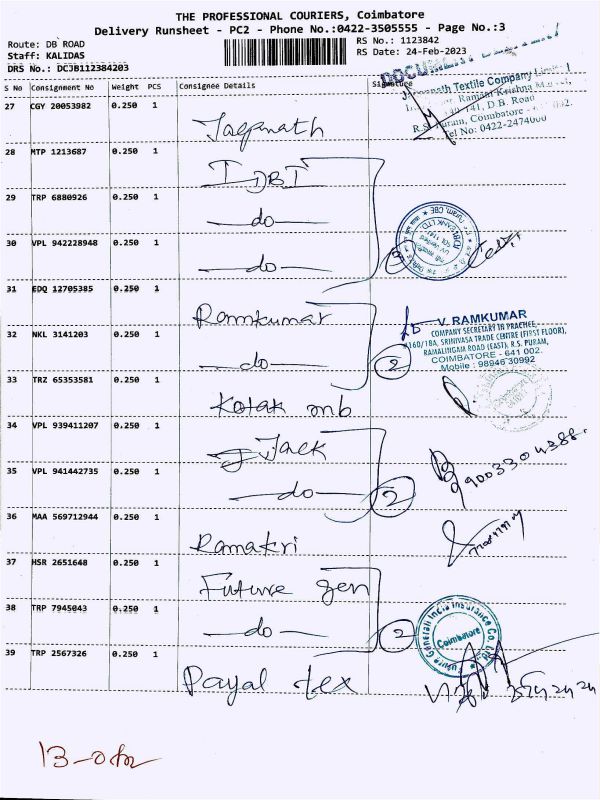 THE PROFESSIONAL COURIERS, Coimbatore
Delivery Runsheet - PC2 - Phone No.:0422-3505555 - Page No.:3
Route: DB ROAD
RS No.: 1123842
Staff: KALIDAS
RS Date: 24-Feb-2023
DRS No.: DCJB112384203
S No Consignment No Weight PCS Consignee Details Signature
Textile Company
141, D.B. Road
R.S. Puram, Coimbatore
Tel No: 0422-2474000
27 CGY 20053982 0.250 1
28 MTP 1213687 0.250 1 IDBI
29 TRP 6880926 0.250 1 do
30 VPL 942228948 0.250 1 do
3
31 EDQ 12705385 0.250 1 Ramkumar
V. RAMKUMAR
COMPANY SECRETARY IN PRACTICE,
160/18A, SRINIVASA TRADE CENTRE (FIRST FLOOR),
RAMALINGAM ROAD (EAST), R.S. PURAM,
COIMBATORE - 641 002.
Mobile : 98946 30992
32 NKL 3141203 0.250 1 do 2
33 TRZ 65353581 0.250 1 Kotak mb
34 VPL 939411207 0.250 1 Jack
99003304388
35 VPL 941442735 0.250 1 do 2
36 MAA 569712944 0.250 1 Ramakri
37 HSR 2651648 0.250 1 Future gen
38 TRP 7945043 0.250 1 do 2
Future Generali India Insurance Co. Ltd
Coimbatore
39 TRP 2567326 0.250 1 Payal tex